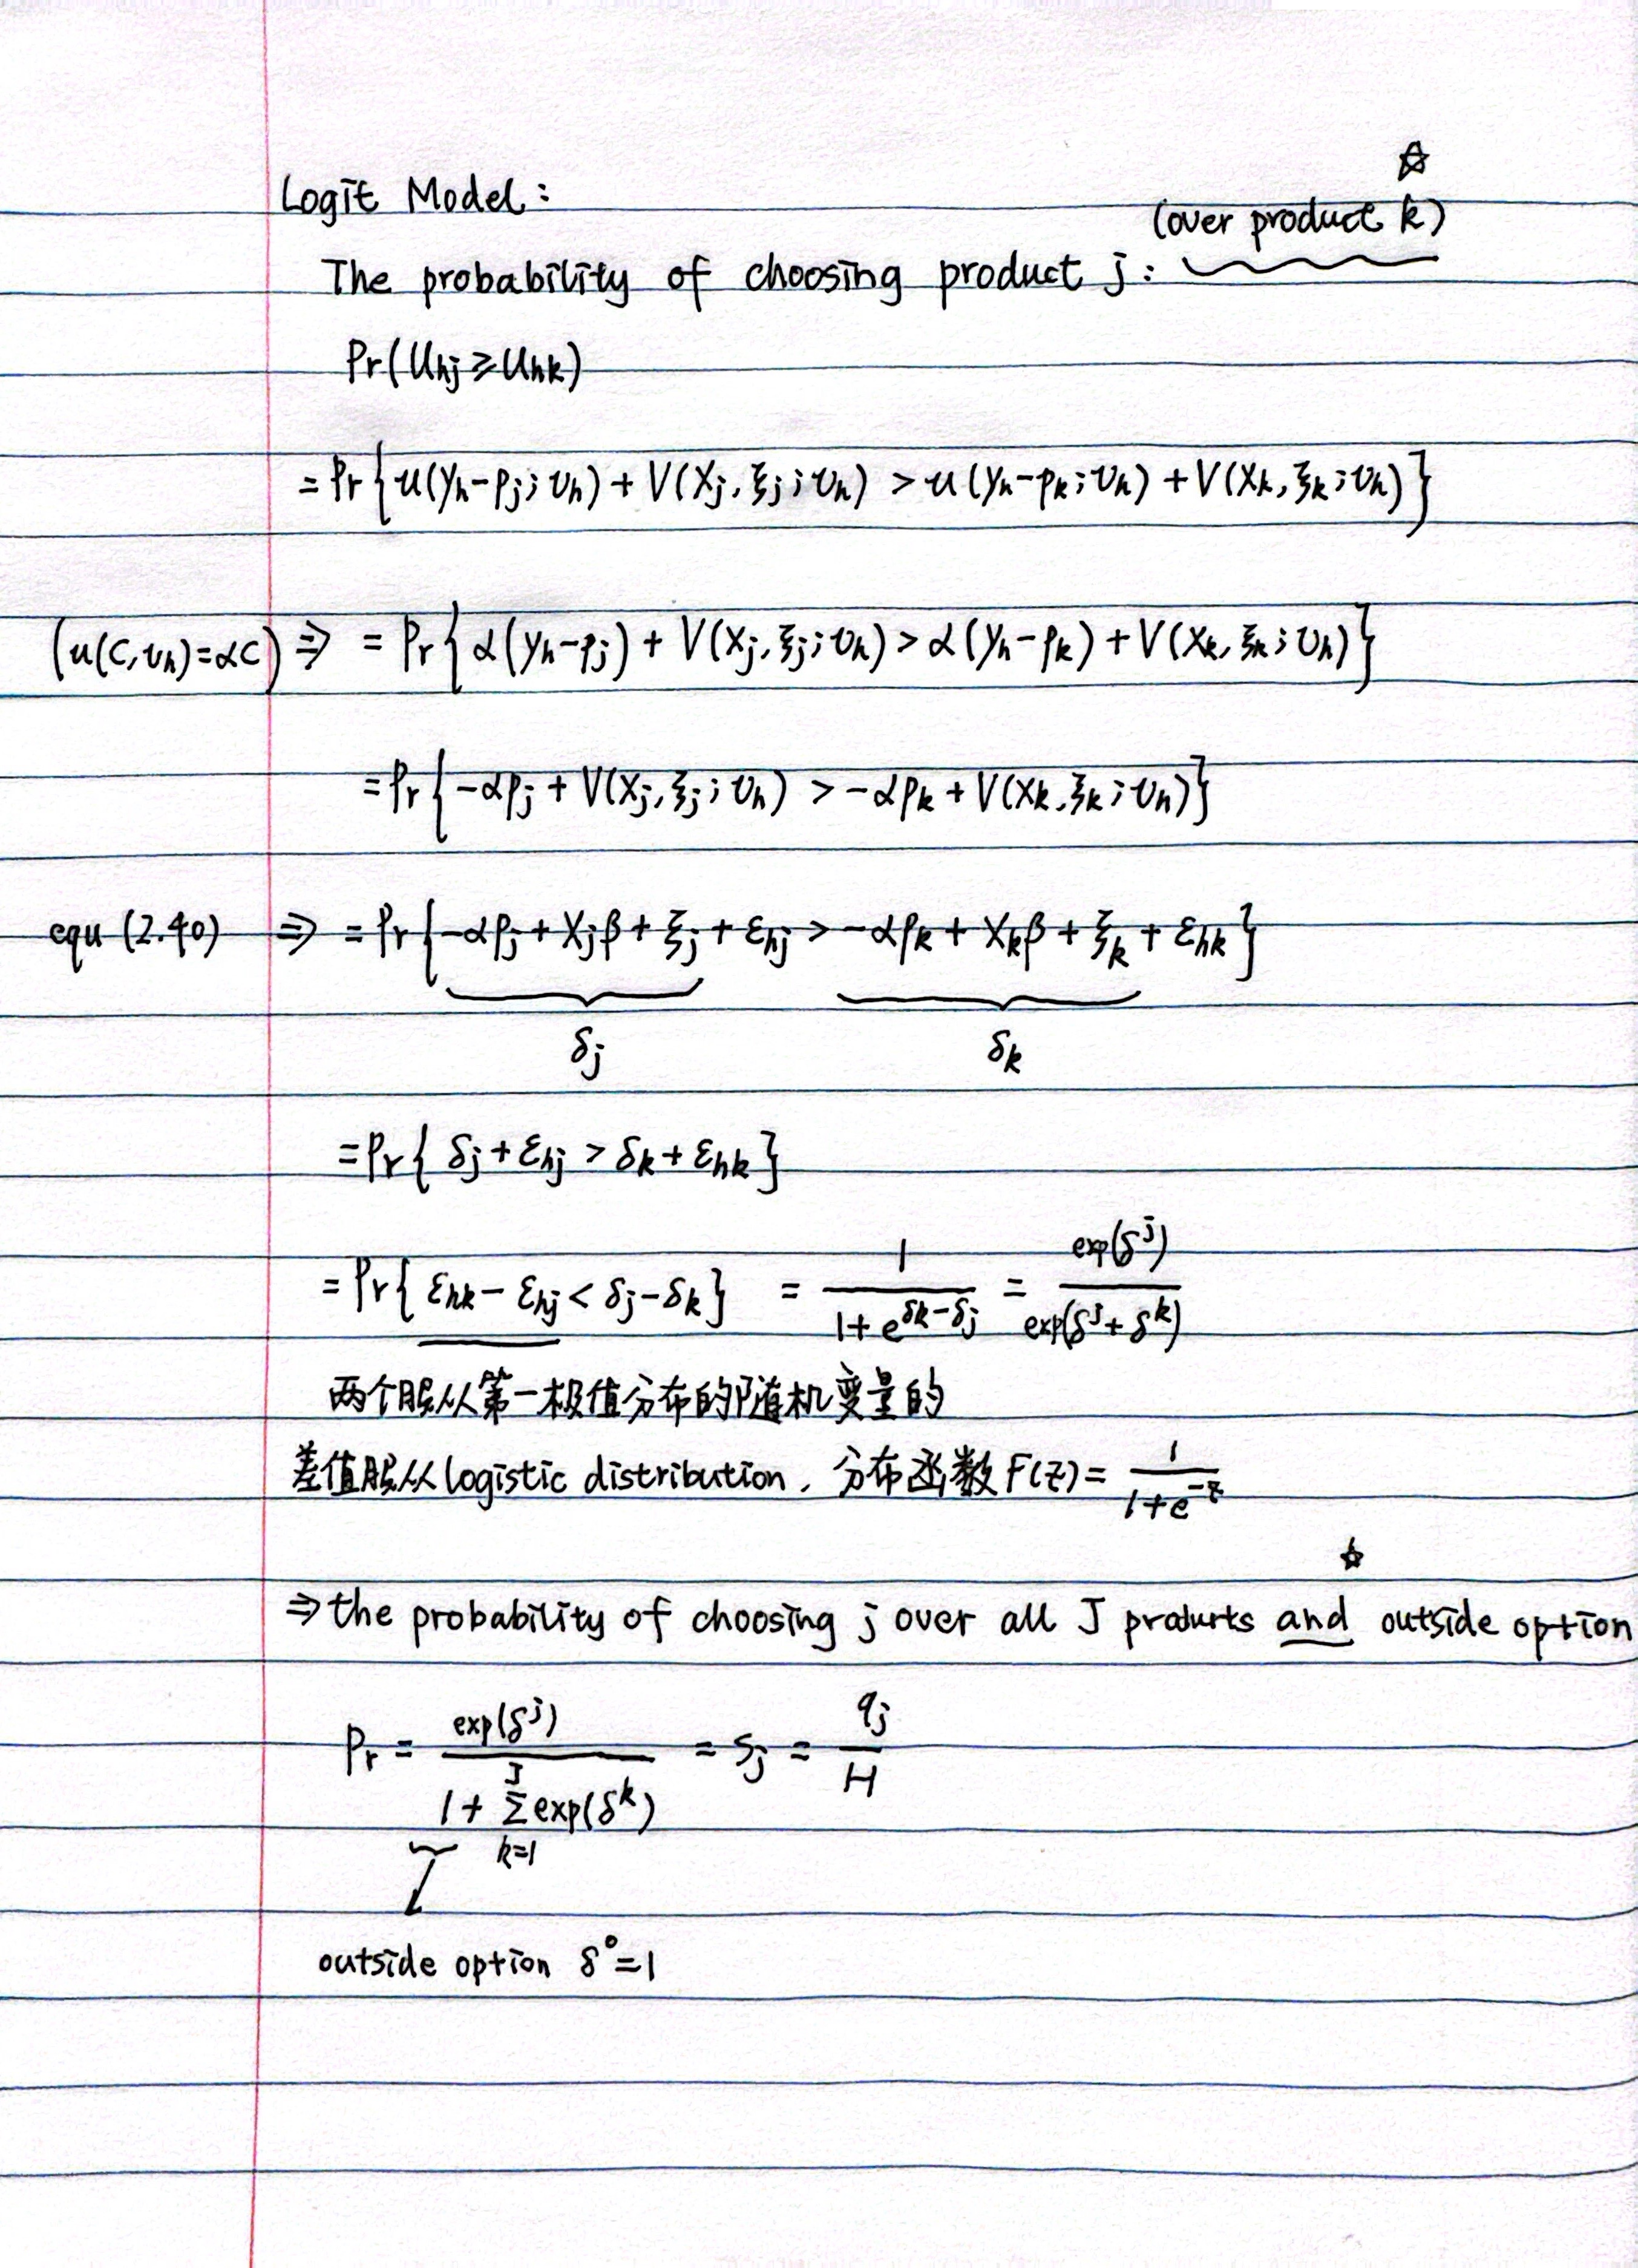 ☆
(over product k)
Logit Model:
The probability of choosing product j:
Pr(Uhj ≥ Uhk)
= Pr{u(yh-pj; υh) + V(Xj, ξj; υh) > u(yh-pk; υh) + V(Xk, ξk; υh)}
(u(C, υh)=αC) ⇒ = Pr{α(yh-pj) + V(Xj, ξj; υh) > α(yh-pk) + V(Xk, ξk; υh)}
= Pr{-αpj + V(Xj, ξj; υh) > -αpk + V(Xk, ξk; υh)}
equ (2.40) ⇒ = Pr{-αpj + Xjβ + ξj + εhj > -αpk + Xkβ + ξk + εhk}
δj δk
= Pr{δj + εhj > δk + εhk}
= Pr{εhk - εhj < δj - δk} = 1/(1+e^(δk-δj)) = exp(δ^j)/exp(δ^j+δ^k)
两个服从第一极值分布的随机变量的
差值服从 logistic distribution, 分布函数 F(z) = 1/(1+e^-z)
☆
⇒ the probability of choosing j over all J products and outside option
Pr = exp(δ^j)/(1+Σ_{k=1}^{J} exp(δ^k)) = sj = qj/H
outside option δ^0=1